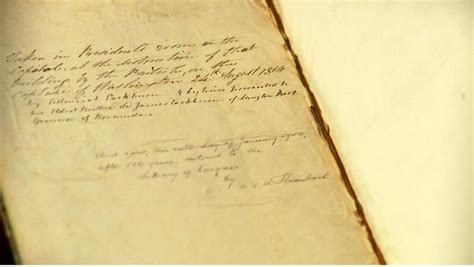 Taken in Presidents room in the
Capitol, at the destruction of that
building by the British, on the
Capture of Washington 24th August 1814
by Admiral Cockburn & by him presented to
his Eldest Brother Sir James Cockburn of Langton Bart
Governor of Bermuda.
And now, this day of January, 1940,
after 126 years, restored to the
Library of Congress
by A. S. W. Rosenbach